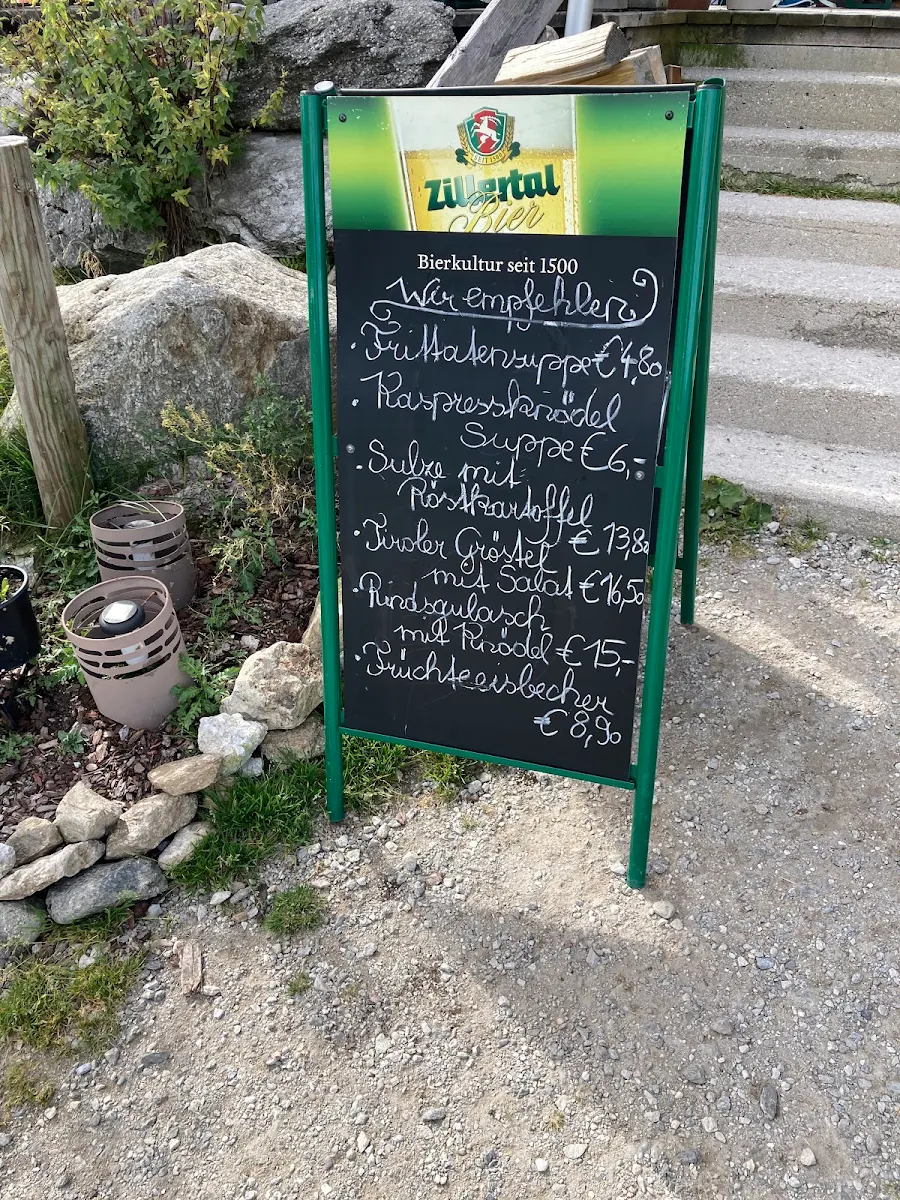 SEIT 1500
Zillertal
Bier
Bierkultur seit 1500
Wir empfehlen
· Frittatensuppe € 4,80
· Kaspressknödel
Suppe € 6,-
· Sulze mit
Röstkartoffel
€ 13,80
· Tiroler Gröstel
mit Salat € 16,50
· Rindsgulasch
mit Knödel € 15,-
· Früchteeisbecher
€ 8,90